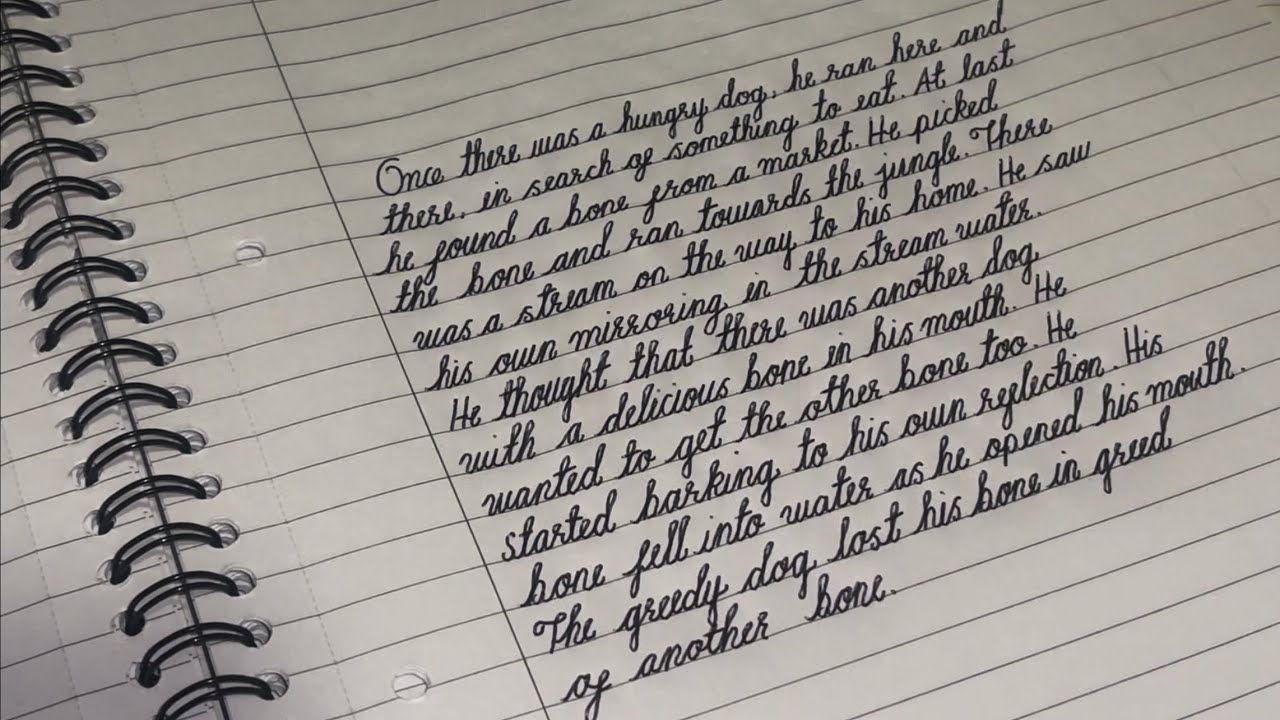 Once there was a hungry dog, he ran here and
there, in search of something to eat. At last
he found a bone from a market. He picked
the bone and ran towards the jungle. There
was a stream on the way to his home. He saw
his own mirroring in the stream water.
He thought that there was another dog
with a delicious bone in his mouth. He
wanted to get the other bone too. He
started barking to his own reflection. His
bone fell into water as he opened his mouth.
The greedy dog lost his bone in greed
of another bone.